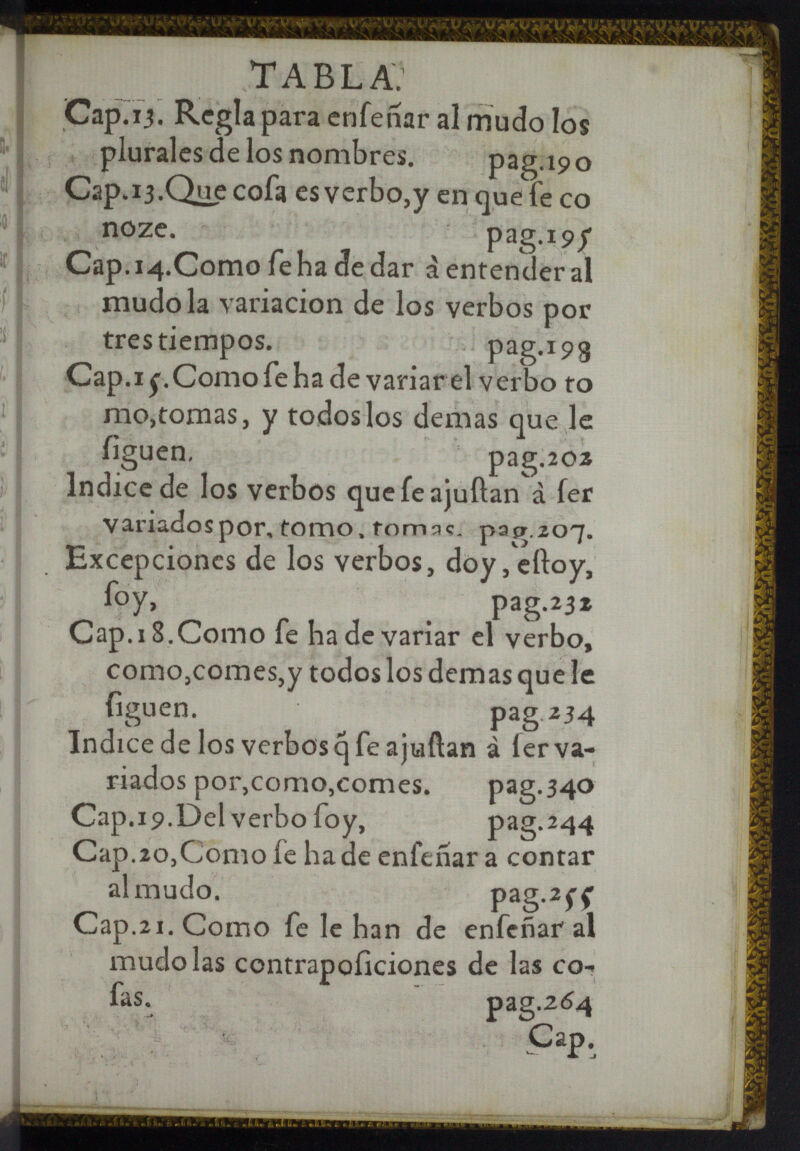 TABLA.
Cap.13. Regla para enſeñar al mudo los
plurales de los nombres. pag.190
Cap.13.Que coſa es verbo,y en que ſe co
noze. pag.195
Cap.14.Como ſe ha de dar à entender al
mudo la variacion de los verbos por
tres tiempos. pag.198
Cap.15.Como ſe ha de variar el verbo to
mo,tomas, y todos los demas que le
ſiguen. pag.202
Indice de los verbos que ſe ajuſtan à ſer
variados por, tomo, tomas. pag.207.
Excepciones de los verbos, doy, eſtoy,
ſoy, pag.232
Cap.18.Como ſe ha de variar el verbo,
como,comes,y todos los demas que le
ſiguen. pag.234
Indice de los verbos q̃ ſe ajuſtan à ſer va-
riados por,como,comes. pag.340
Cap.19.Del verbo ſoy, pag.244
Cap.20,Como ſe ha de enſeñar a contar
al mudo. pag.255
Cap.21. Como ſe le han de enſeñar al
mudo las contrapoſiciones de las co-
ſas. pag.264
Cap.